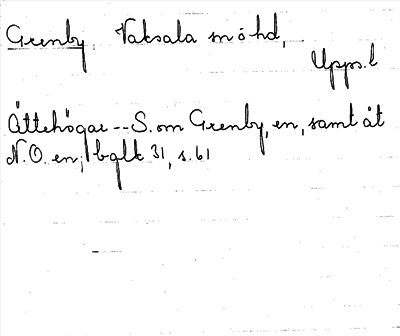 Grenby. Vaksala sn o hd,
Upps. l
Ättehögar -- S. om Grenby, en, samt åt
N.O. en; bglt 31, s. 61